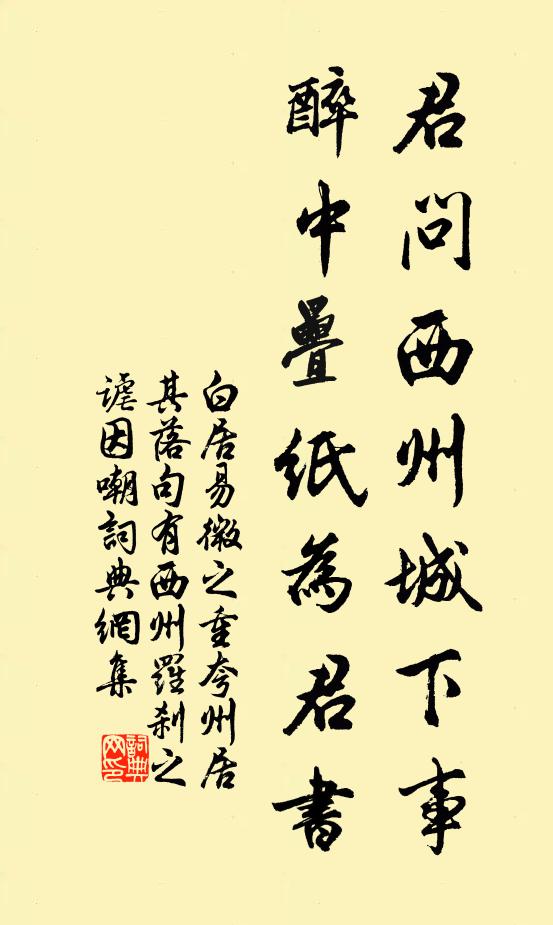 君問西州城下事
醉中疊紙為君書
白居易微之重夸州居
其落句有西州羅剎之
謔因嘲詞典網集
詞典網印